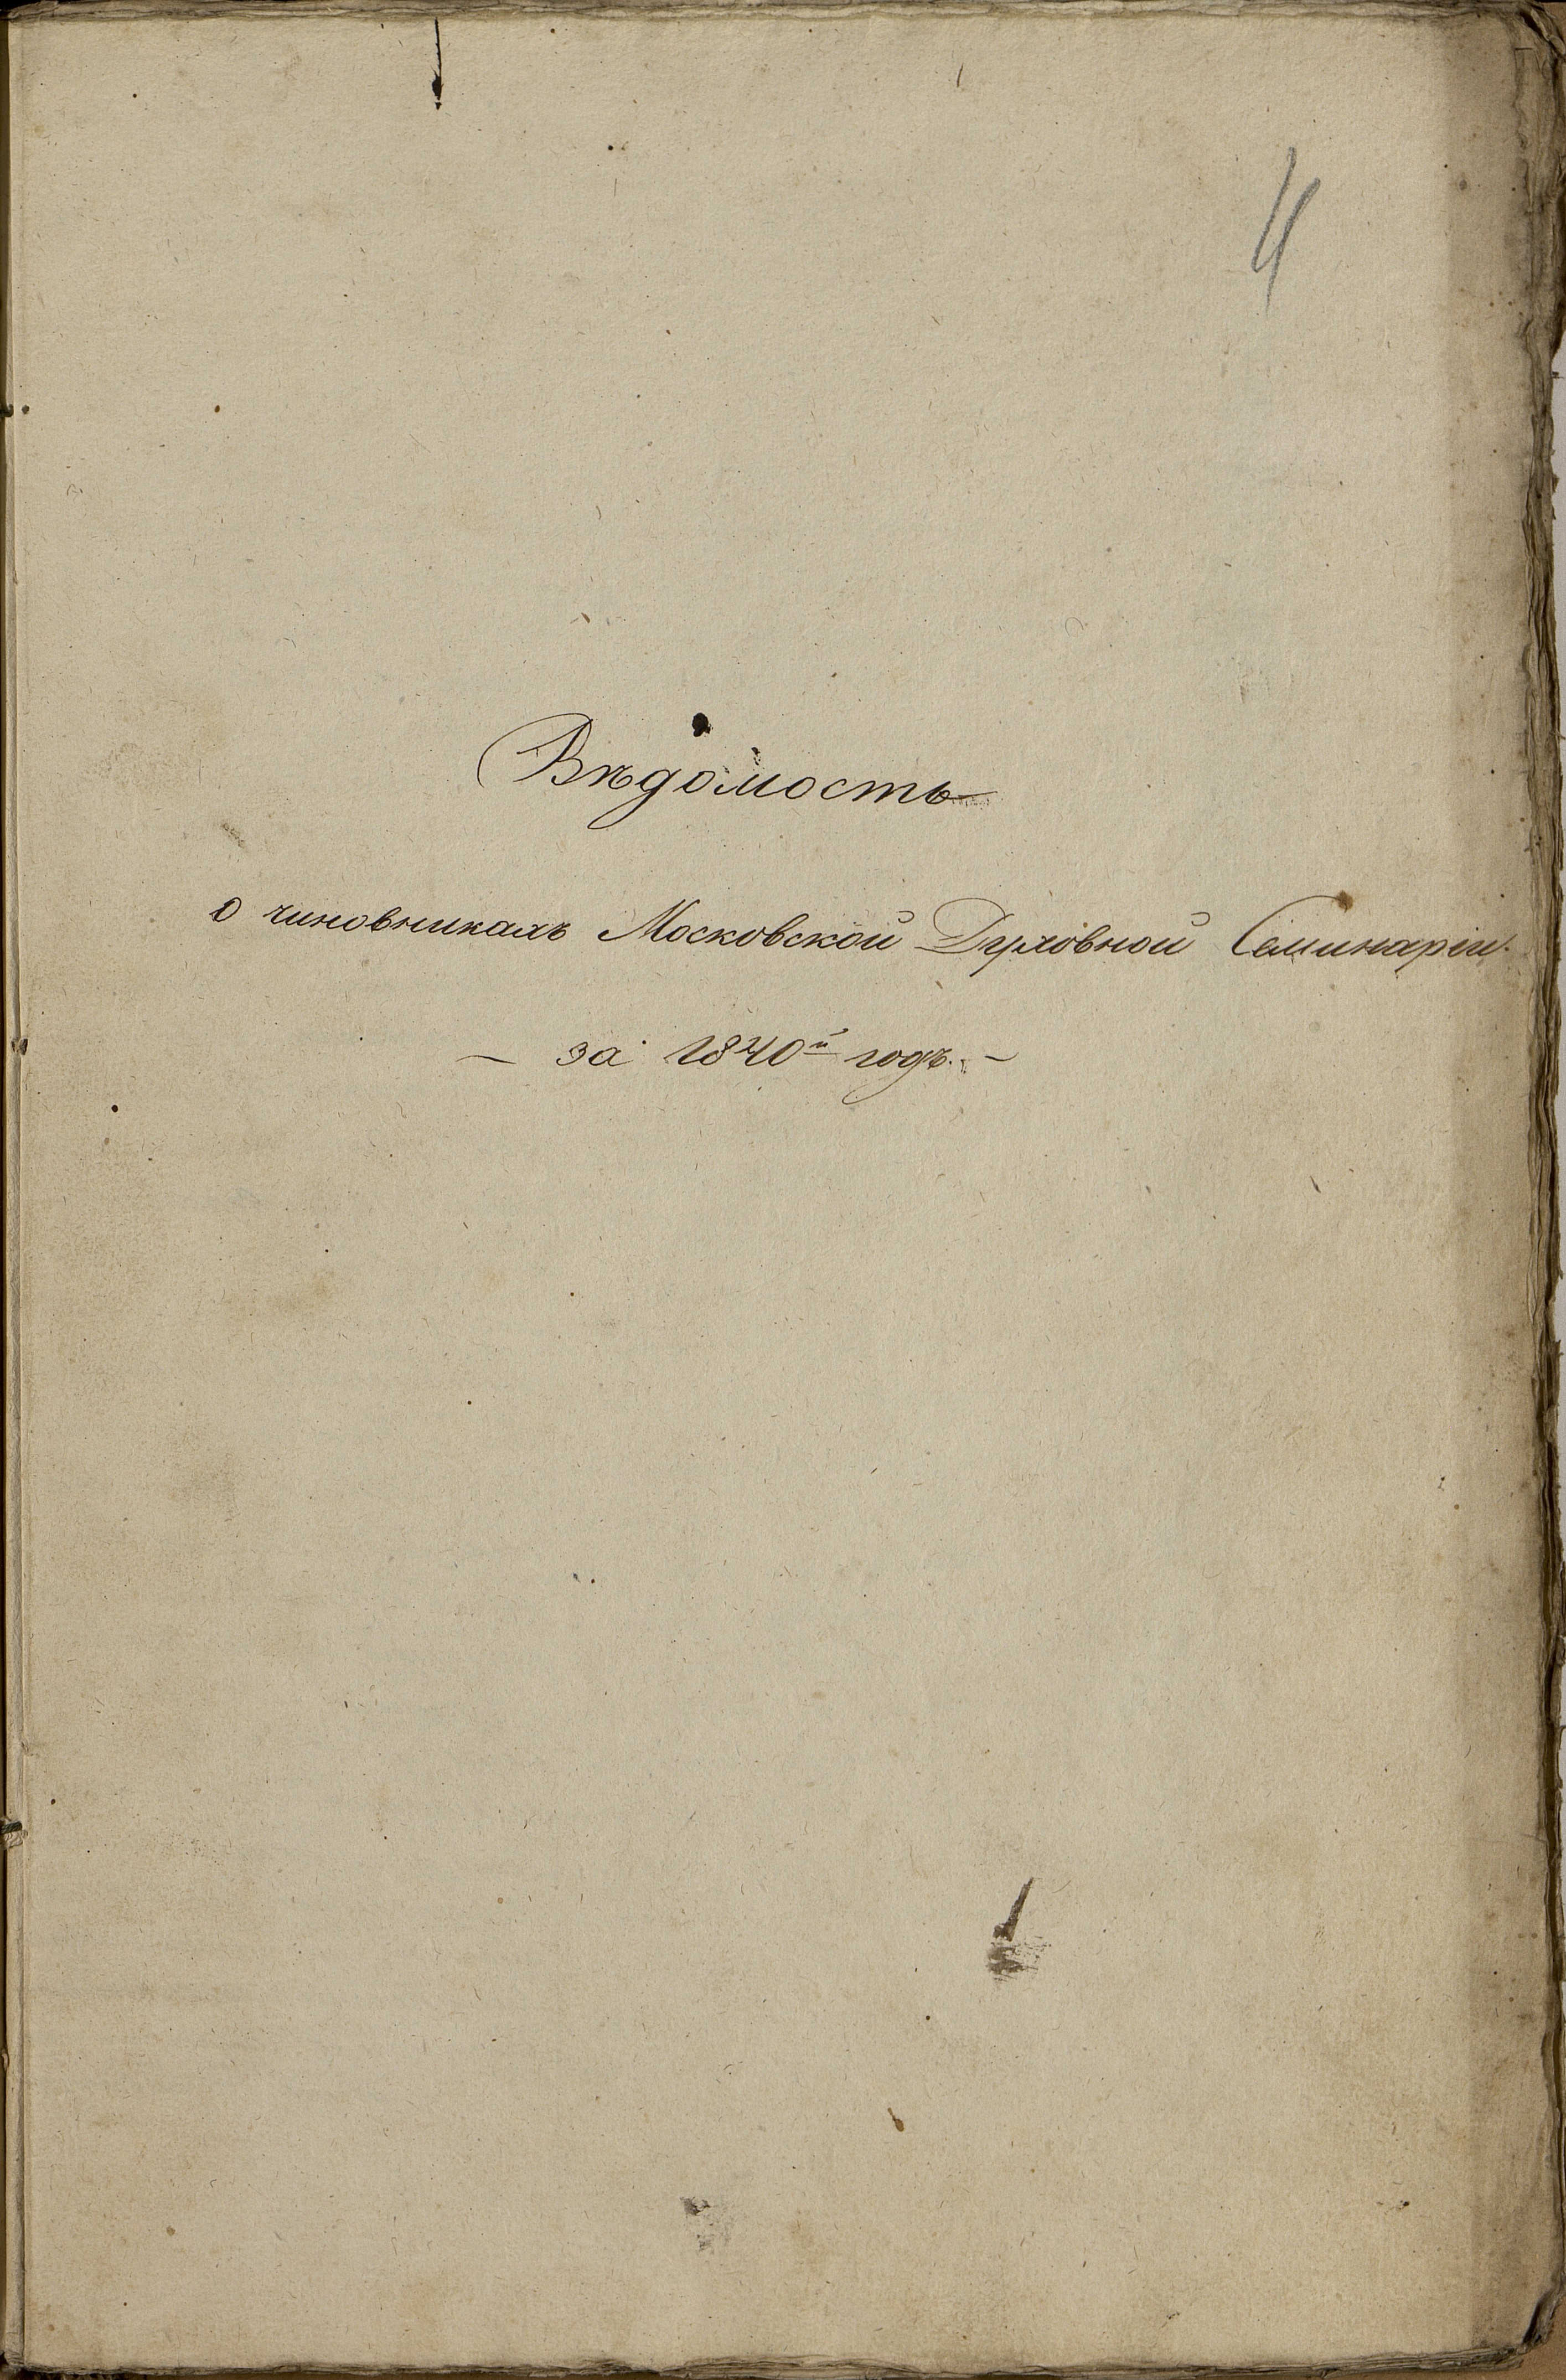 4
Вѣдомость
о чиновникахъ Московской Духовной Семинаріи.
— за 1840й годъ. —